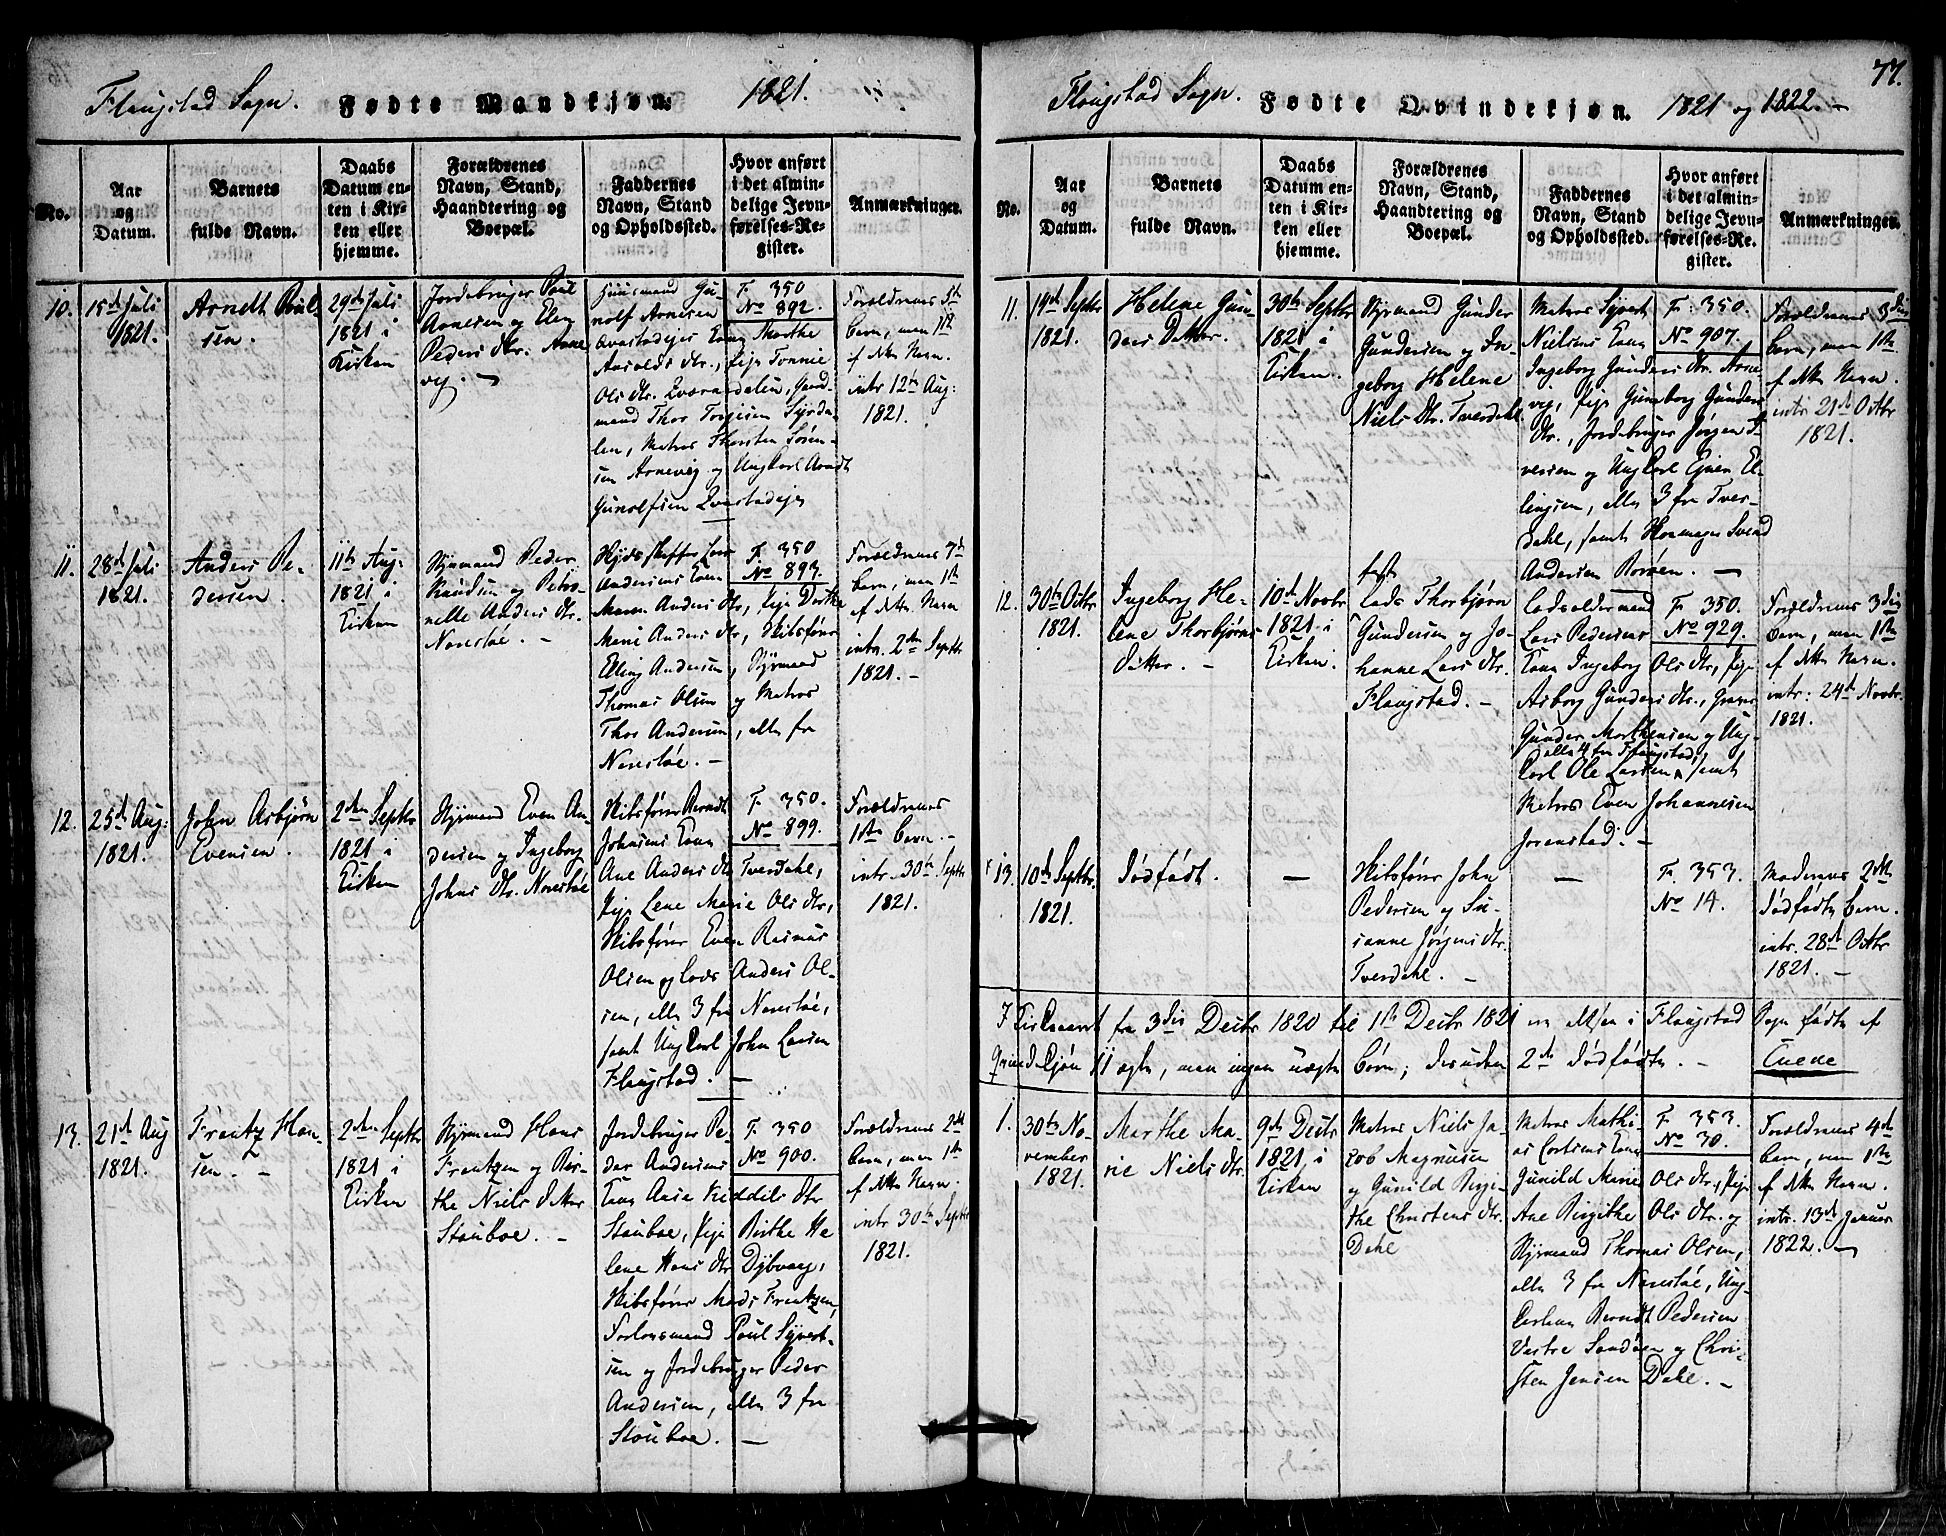 Flaugstad Sogn. Fødte Mandkjøn. 1821.
No.
Aar
og
Datum.
Barnets
fulde Navn.
Daabs
Datum en-
ten i Kir-
ken eller
hjemme.
Forældrenes
Navn, Stand,
Haandtering og
Boepæl.
Faddernes
Navn, Stand
og Opholdssted.
Hvor anført
i det almin-
delige Jevn-
førelses-Re-
gister.
Anmærkninger.
10.
15de Juli
1821.
Arndt Poul-
sen.
29de Juli
1821 i
Kirken
Jordebruger Poul
Arnesen og Elen
Peders dtr. Arne
vig. –
Huusmand Gu-
nolf Arnesen
Qvastadejes Kone Marthe
Arvolds dtr., Pige Tonnie
Ols dtr. Qvaradalen, Land-
mand Thor Torgesen Syrda-
len, Matros Thorsten Søren-
sen Arnevig og Ungkarl Arndt
Gunolfsen Qvastadeje
F. 350
No 892.
Forældrenes 5te
barn, men 1ste
af dette Navn
intr. 12te Aug:
1821.
11.
28de Juli
1821.
Anders Pe-
dersen.
11te Aug:
1821 i
Kirken
Styrmand Peder
Knudsen og Petro-
nelle Anders dtr.
Narestøe. –
Andersens Kone
Maren Anders dtr, Pige Dorthe
Marie Anders dtr, Skibsfører
Elling Andersen, Styrmand
Thomas Olsen og Matros
Thor Andersen, alle fra
Narestøe. –
F. 350
No 893.
Forældrenes 7de
barn, men 1ste
af dette Navn
intr. 2den Septbr
1821. –
12.
25de Aug:
1821.
John Asbjørn
Evensen.
2den Septbr
1821 i
Kirken
Styrmand Even An-
dersen og Ingeborg
Johns dtr. Narestøe
Skibsfører Berndt
Johnsens Kone
Ane Anders dtr Tverdahl,
Pige Lene Marie Ols dtr,
Skibsfører Even Rasmus
Olsen og Lods Anders Ol-
sen, alle 3 fra Narestøe,
samt Ungkarl John Larsen
Flaugstad. –
F. 350.
No 899.
Forældrenes
1ste barn. –
intr. 30te Septbr
1821.
13.
21de Aug
1821.
Frantz Han-
sen. –
2den Septbr
1821 i
Kirken
Styrmand Hans
Frantzen og Bir-
the Niels datter
Stouboe. –
Jordebruger Pe-
der Andersens
Kone Aasa Kiddels dtr
Stouboe, Pige Birthe He
lene Hans dtr Dybvaag,
Skibsfører Mads Frantzen,
Forlovsmand Poul Syvert-
sen og Jordebruger Peder
Andersen, alle 3 fra
Stouboe. –
F. 350
No 900.
Forældrenes 2det
barn, men 1ste
af dette Navn.
intr. 30te Septbr
1821.
77.
Flaugstad Sogn. Fødte Qvindekjøn. 1821 og 1822. –
No.
Aar
og
Datum.
Barnets
fulde Navn.
Daabs
Datum en-
ten i Kir-
ken eller
hjemme.
Forældrenes
Navn, Stand,
Haandtering og
Boepæl.
Faddernes
Navn, Stand
og Opholdssted.
Hvor anført
i det almin-
delige Jevn-
førelses-Re-
gister.
Anmærkninger.
11.
14de Septbr
1821.
Helene Gun-
ders Datter.
30te Septbr
1821 i
Kirken.
Styrmand Gunder
Gundersen og In-
geborg Helene
Niels dtr. Tverdahl.
Matros Syvert
Nielsens Kone
Ingeborg Gunders dtr. Arne
vig, Pige Gunborg Gunders
dtr., Jordebruger Jørgen I-
versen og Ungkarl Even El-
lingsen, alle 3 fra Tver-
dahl, samt Svend
Andersen Rorøen. –
F. 350.
No 907.
Forældrenes 3die
barn, men 1ste
af dette Navn.
intr. 21de Octbr
1821.
12.
30te Octbr
1821.
Ingeborg He-
lene Thorbjørns
Datter. –
10de Novbr
1821 i
Kirken.
fast
Lods Thorbjørn
Gundersen og Jo-
hanne Lars dtr.
Flaugstad. –
Lodsoldermand
Lars Pedersens
Kone Ingeborg Ols dtr, Pige
Asborg Gunders dtr.,
Gunder Morthensen og Ung-
alle 4 fra Flaugstad,
karl Ole Larsen, samt
Matros Even Johannesen
Jorenstad. –
F. 350.
No 929.
Forældrenes 3die
barn, men 1ste
af dette Navn.
intr: 24de Novbr.
1821.
13.
10de Septbr.
1821.
Dødfødt.
–
Skibsfører John
Pedersen og Su-
sanne Jørgens dtr.
Tverdahl. –
–
F. 353.
No 14.
Moderens 2det
dødfødte barn.
intr. 28de Octbr
1821. –
I Kirkeaaret fra 3die Decbr 1820 til 1ste Decbr 1821 er altsaa i Flaugstad Sogn fødte af
Qvindekjøn 11 ægte, men ingen uægte børn; desuden 2de dødfødte. –
1.
30te No-
vember
1821.
Marthe Ma-
rie Niels dtr.
9de Decbr
1821 i
Kirken
Matros Niels Ja-
cob Magnusen
og Gunild Birgi-
the Christens dtr.
Dahl
Matros Mathi-
as Cortsens Kone
Gunild Marie Ols dtr, Pige
Ane Birgithe Ols dtr. og
Styrmand Thomas Olsen,
alle 3 fra Narestøe, Ung-
karlen Berndt Pedersen
Vestre Sandøen og Chri-
sten Jensen Dahl. –
F. 353.
No 30.
Forældrenes 4de
barn, men 1ste
af dette Navn.
intr. 13de Januar
1822. –